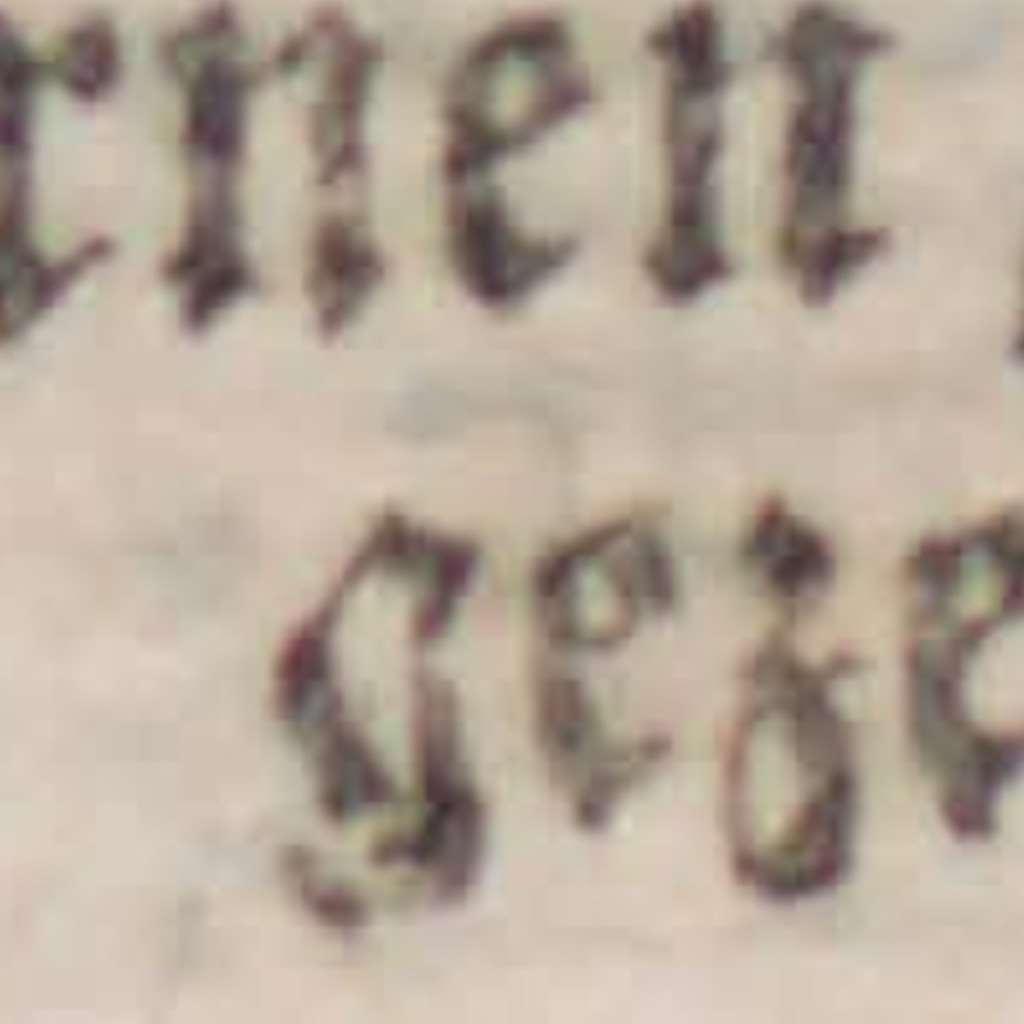 rnen
geze